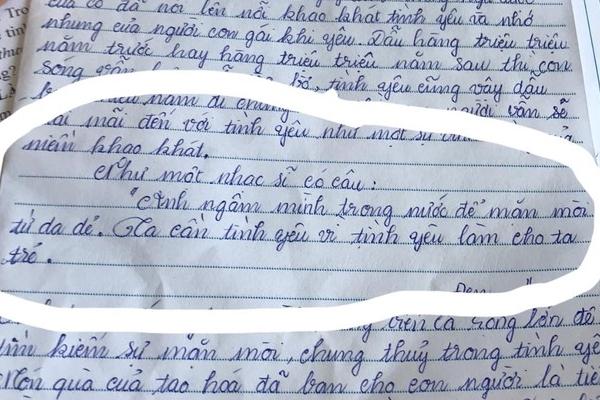 của cô đã nói lên nỗi khao khát tình yêu và nhớ
nhung của người con gái khi yêu. Dẫu hàng triệu triệu
năm trước hay hàng triệu triệu năm sau thì con
sóng vẫn tình yêu cũng vậy dẫu
năm đi chăng người vẫn sẽ
mãi mãi đến với tình yêu như một sự
niềm khao khát.
Như một nhạc sĩ có câu:
"Anh ngâm mình trong nước để mặn mòi
từ da dẻ. Ta cần tình yêu vì tình yêu làm cho ta
trẻ.
Đen
trên cả rộng lớn để
tìm kiếm sự mặn mòi, chung thuỷ trong tình yê
Món quà của tạo hoá đã ban cho con người là tiê